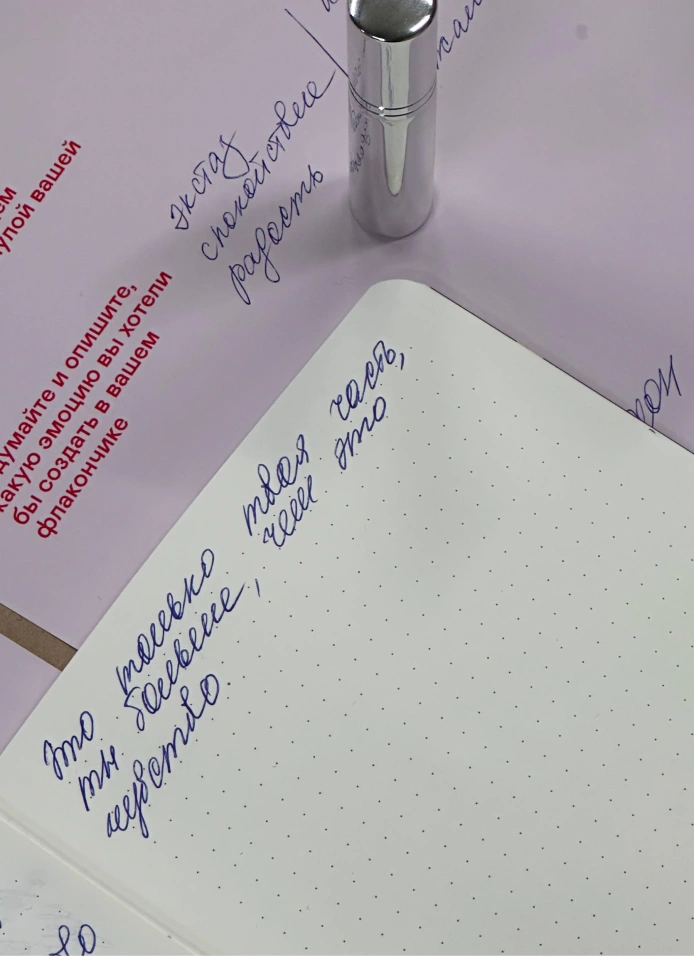 улой вашей
думайте и опишите,
какую эмоцию вы хотели
бы создать в вашем
флакончике
экстаз
спокойствие
радость
это только твоя часть,
ты больше, чем это
чувство